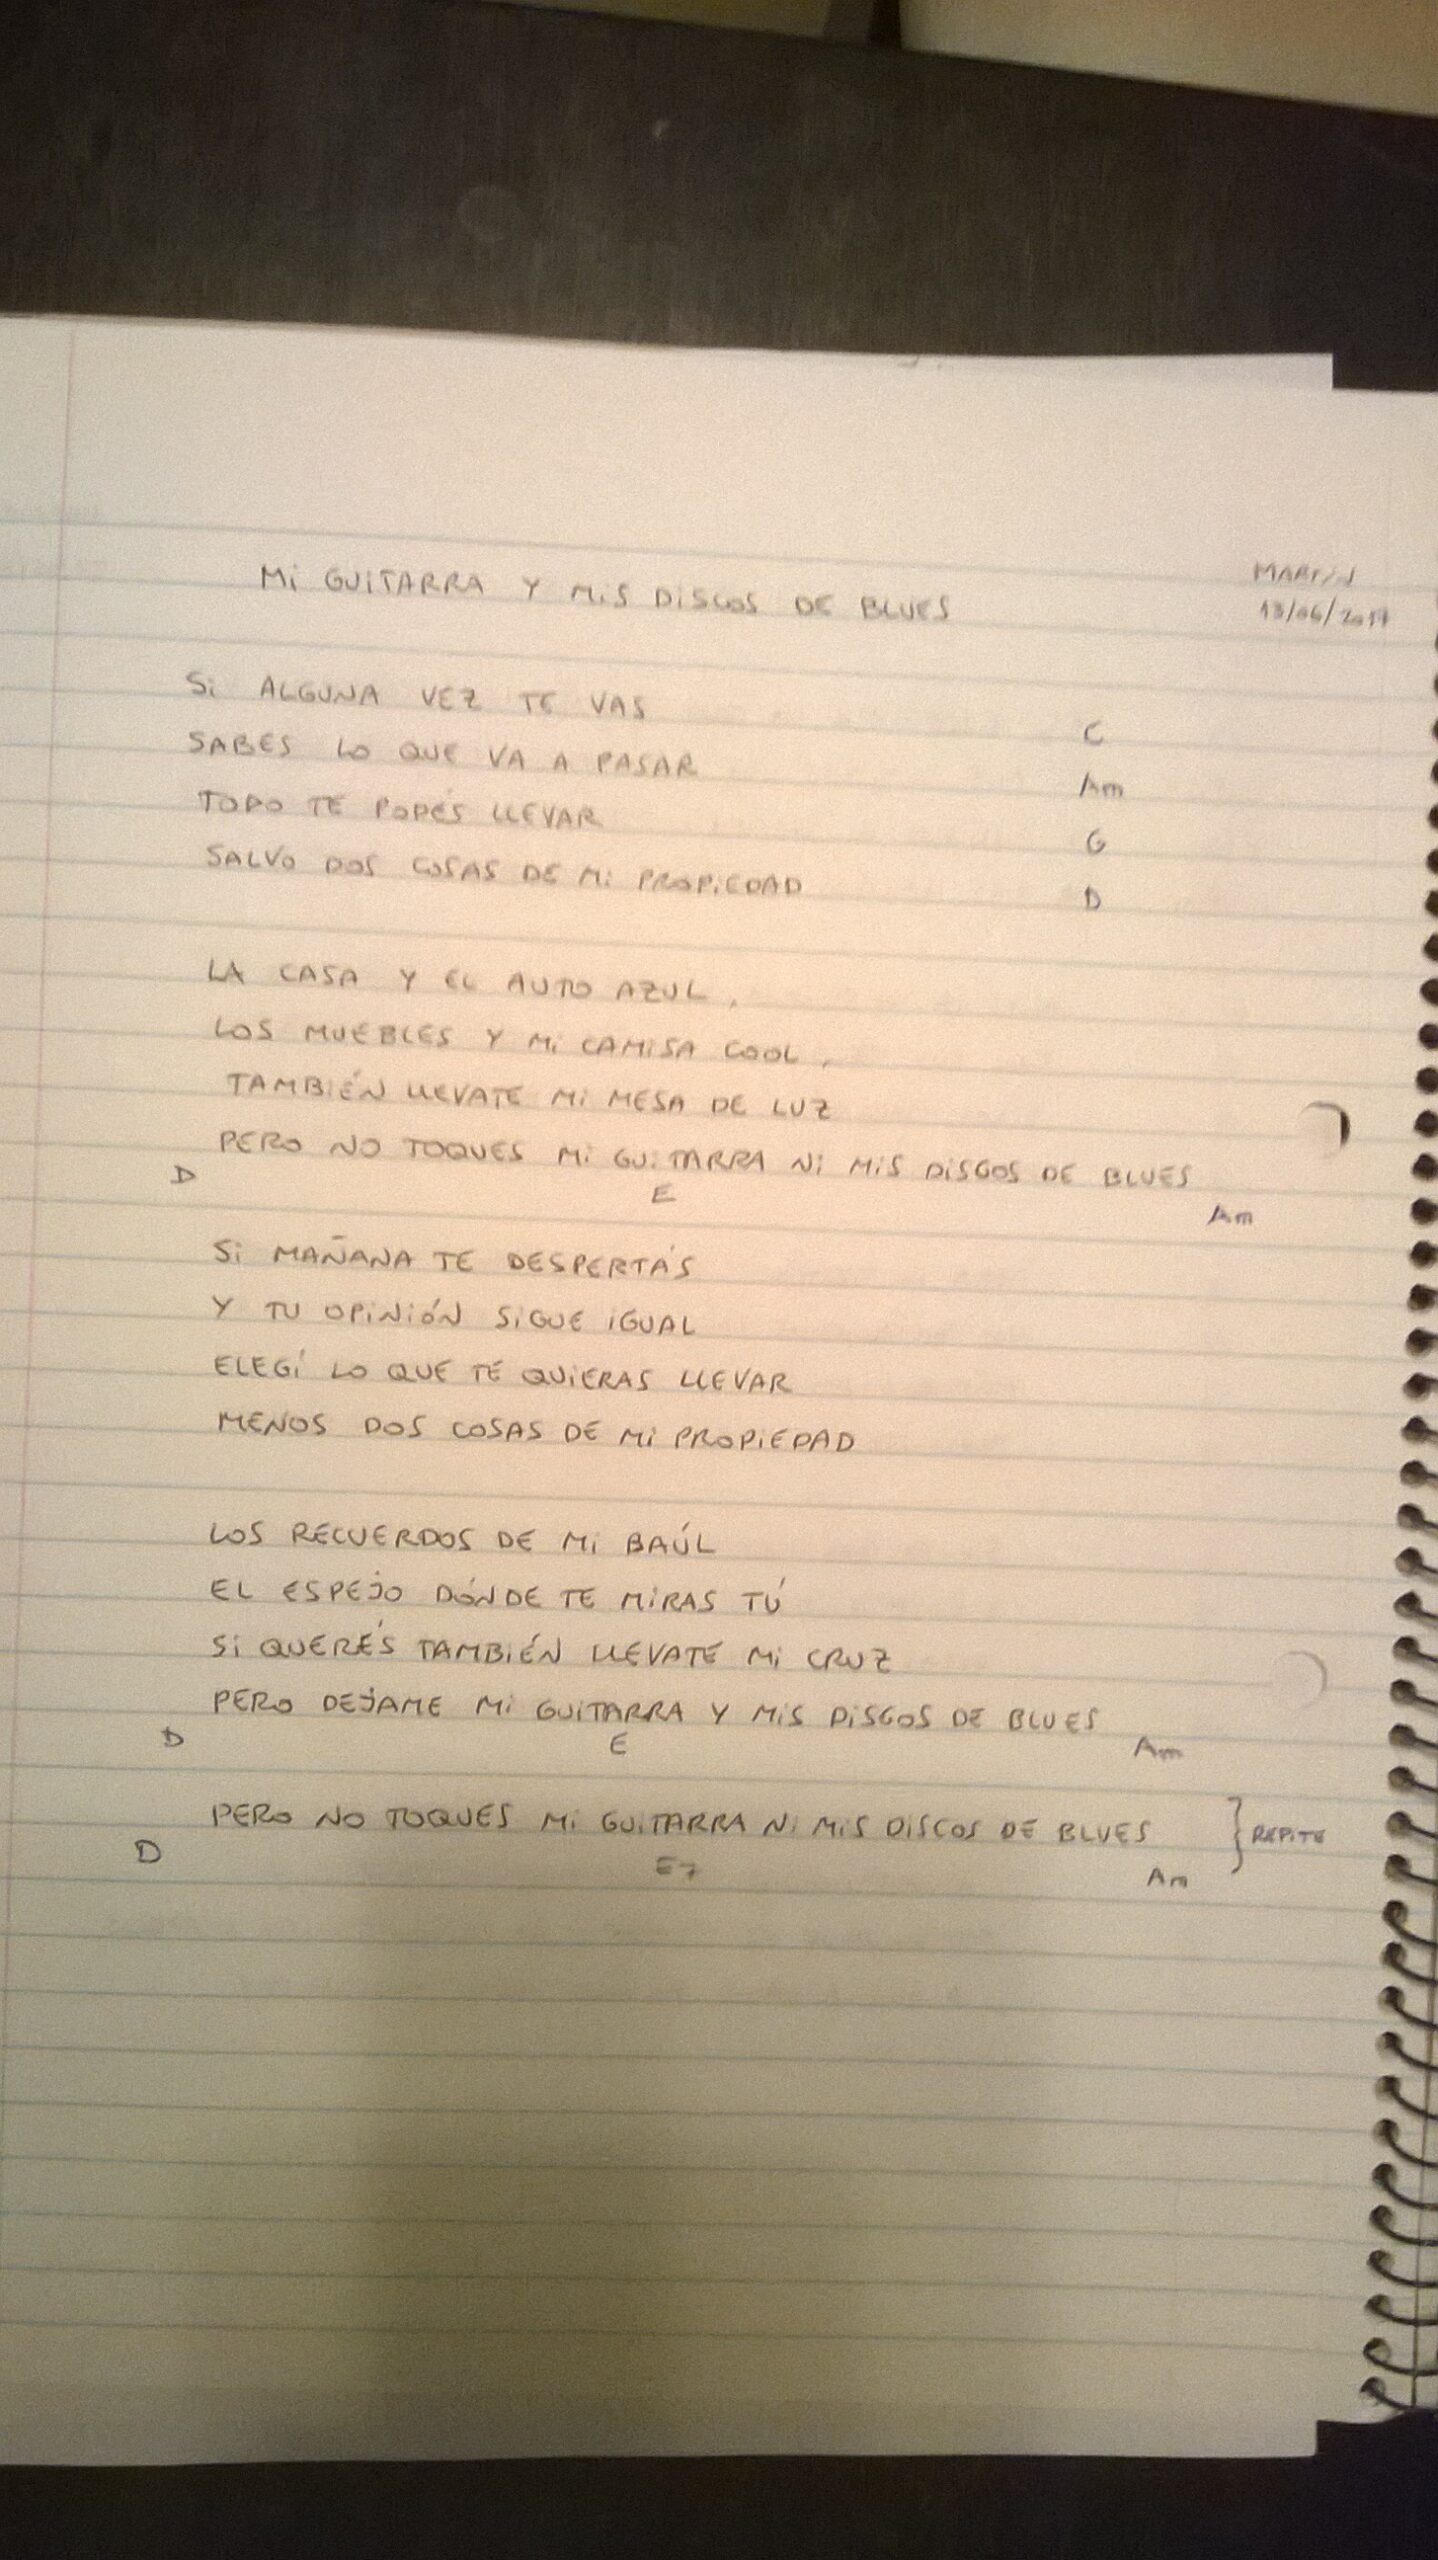 MI GUITARRA Y MIS DISCOS DE BLUES
MARTÍN
13/06/2017
SI ALGUNA VEZ TE VAS
C
SABES LO QUE VA A PASAR
Am
TODO TE PODÉS LLEVAR
G
SALVO DOS COSAS DE MI PROPIEDAD
D
LA CASA Y EL AUTO AZUL,
LOS MUEBLES Y MI CAMISA COOL,
TAMBIÉN LLEVATE MI MESA DE LUZ
PERO NO TOQUES MI GUITARRA NI MIS DISCOS DE BLUES
D E Am
SI MAÑANA TE DESPERTÁS
Y TU OPINIÓN SIGUE IGUAL
ELEGÍ LO QUE TE QUIERAS LLEVAR
MENOS DOS COSAS DE MI PROPIEDAD
LOS RECUERDOS DE MI BAÚL
EL ESPEJO DÓNDE TE MIRAS TÚ
SI QUERÉS TAMBIÉN LLEVATE MI CRUZ
PERO DEJAME MI GUITARRA Y MIS DISCOS DE BLUES
D E Am
PERO NO TOQUES MI GUITARRA NI MIS DISCOS DE BLUES } REPITE
D E7 Am